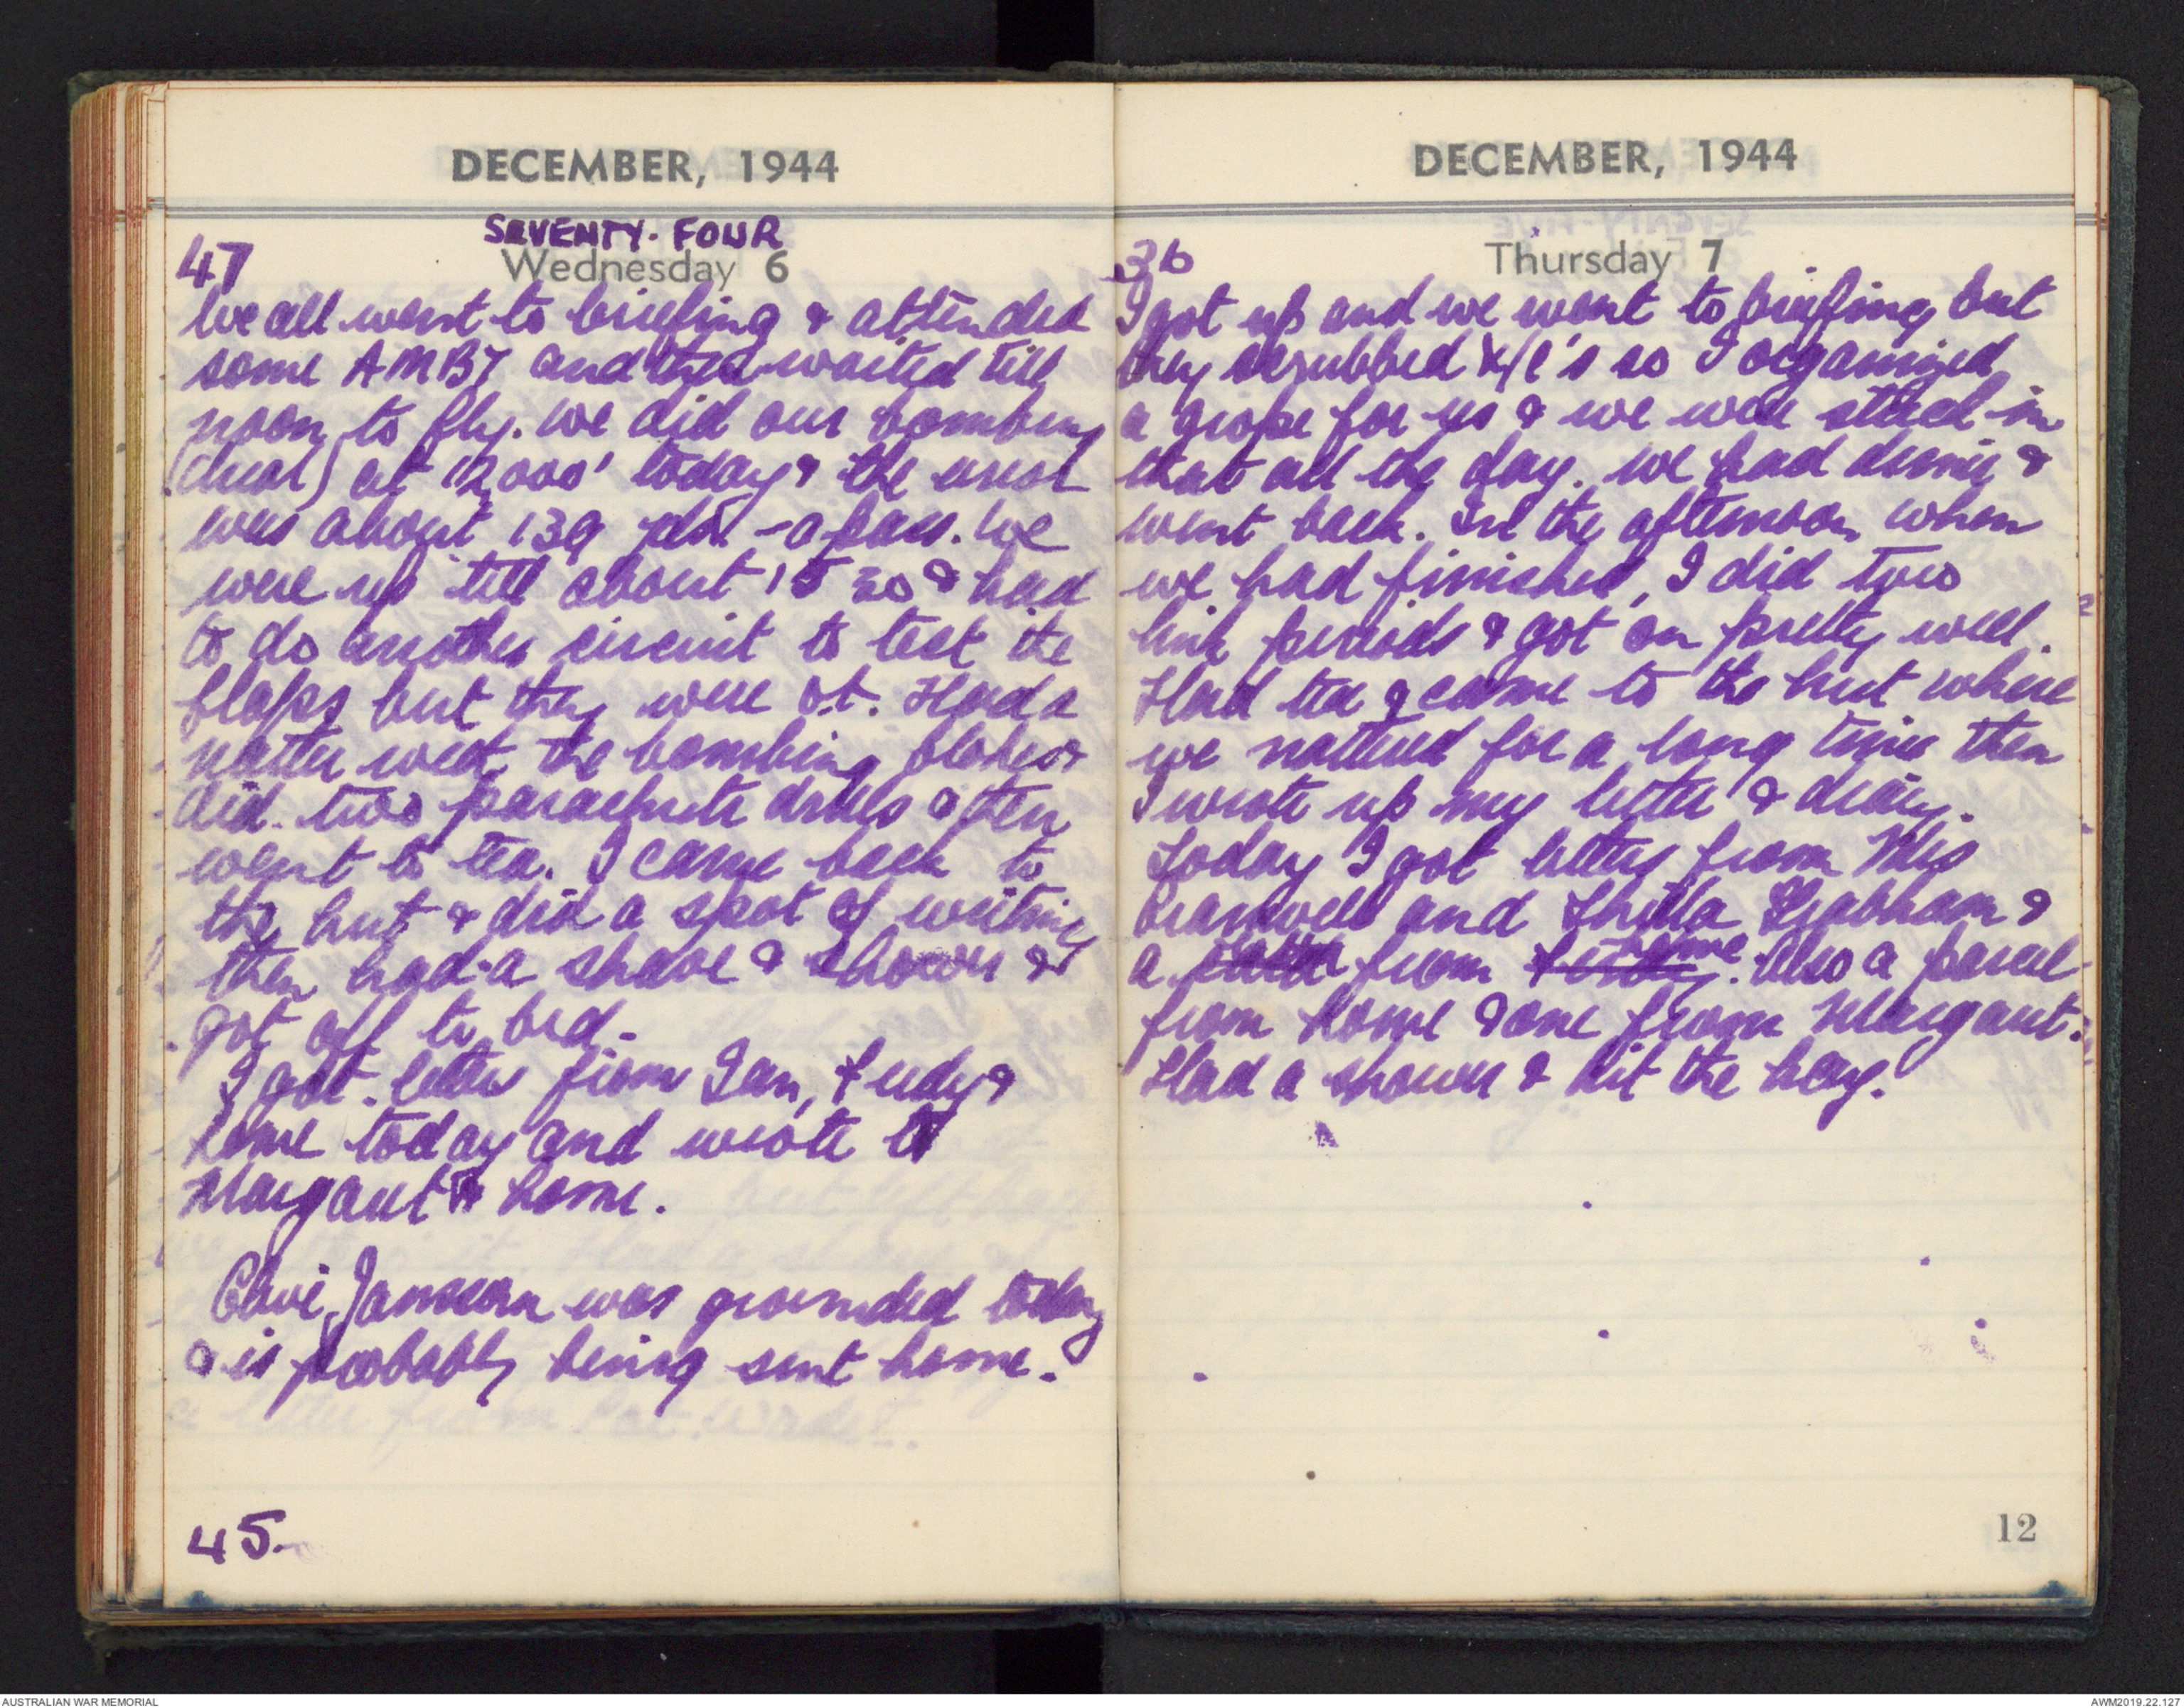 DECEMBER, 1944
SEVENTY. FOUR
47
Wednesday 6
We all went to briefing & attended
some AMBT and then waited till
noon to fly. We did our bombing
(dual) at 12,000' today & the
was about 139 yds. - a pass. We
were up till about 1530 & had
to do another circuit to test the
flaps but they were O.K. Had a
natter with the bombing blokes &
did two parachute drills & then
went to tea. I came back to
the hut & did a spot of writing
then had a shave & shower &
got off to bed.
I got letters from Ian, Judy &
home today and wrote to
Margaret & home.
Clive was grounded today
& is probably being sent home.
45.
DECEMBER, 1944
36
Thursday 7
I got up and we went to briefing but
they scrubbed X/C's so I organized
a grope for us & we were stuck in
that all the day. We had dinner &
went back. In the afternoon when
we had finished, I did two
link periods & got on pretty well.
Had tea & came to the hut where
we nattered for a long time then
I wrote up my letter & diary.
Today I got letters from Mrs
Bramwell and Sheila Grabham &
a from home. Also a parcel
from home & one from Margaret.
Had a shower & hit the hay.
12
AUSTRALIAN WAR MEMORIAL
AWM2019.22.127